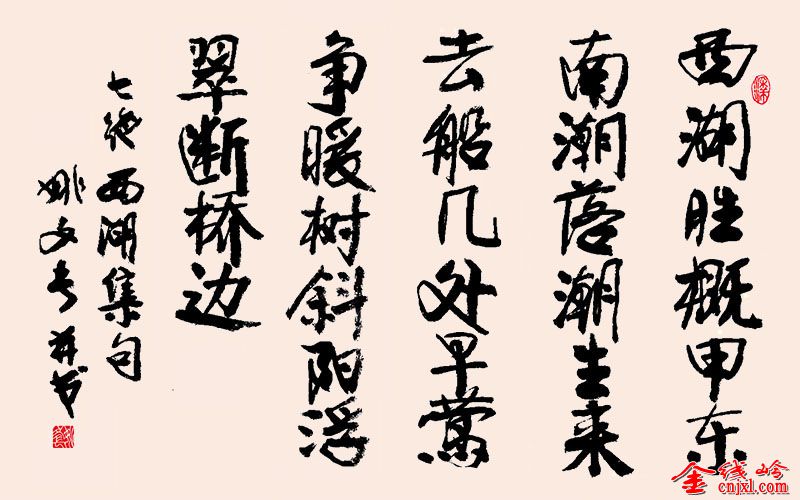 西湖胜概甲东
南潮落潮生来
去船几处早莺
争暖树斜阳浮
翠断桥边
七绝西湖集句
姚文并书
金线岭
cnjxl.com